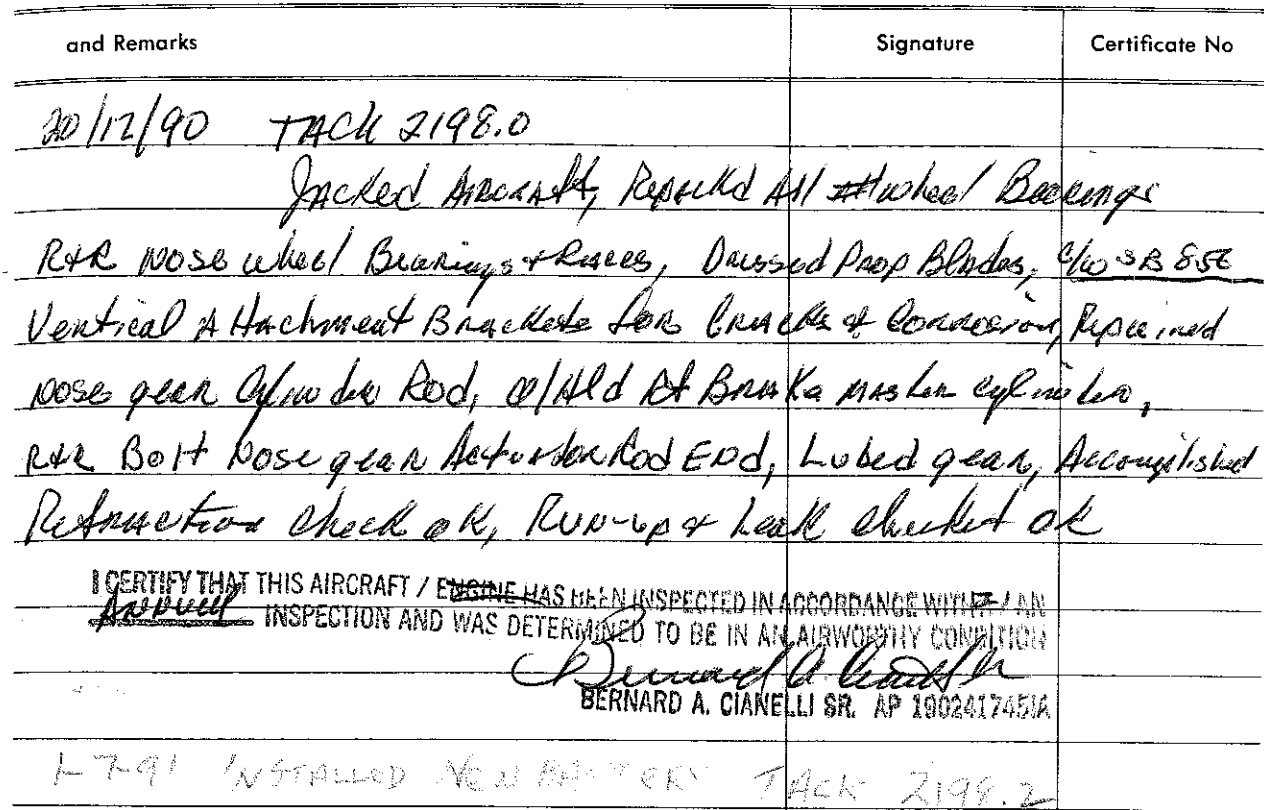 and Remarks Signature Certificate No
20/12/90 TACK 2198.0
Jacked Aircraft, Repack'd All wheel Bearings
R+R Nose wheel Bearings + Races, Dressed Prop Blades, C/W SB 856
Vertical Attachment Brackets for Cracks & Corrosion, Repaired
nose gear Cylinder Rod, O/Hld Rt Brake master cylinder,
R+R Bolt Nose gear Actuator Rod End, Lubed gear, Accomplished
Retraction check ok, Run-up & Leak checked ok
I CERTIFY THAT THIS AIRCRAFT / ENGINE HAS BEEN INSPECTED IN ACCORDANCE WITH / AN
Annual INSPECTION AND WAS DETERMINED TO BE IN AN AIRWORTHY CONDITION
BERNARD A. CIANELLI SR. AP 190241745IA
1-7-91 INSTALLED NEW BATTERY TACK 2198.2